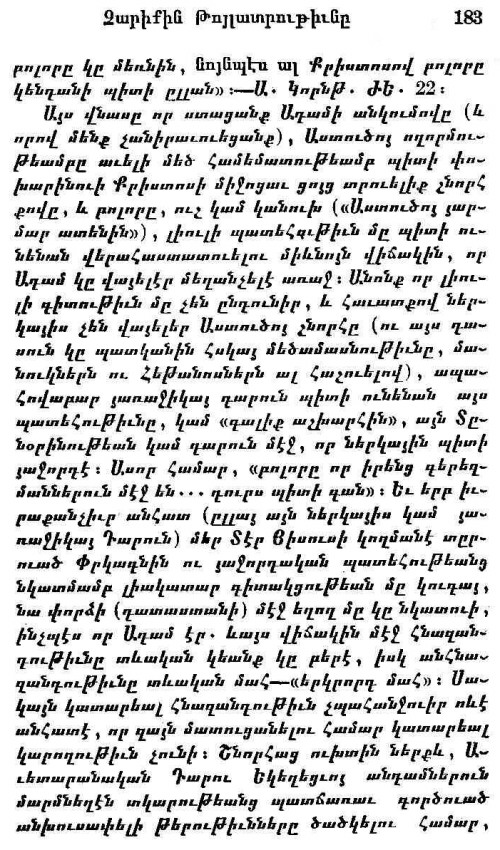 Չարիքին Թոյլատրութիւնը 183
բոլորը կը մեռնին, նոյնպէս ալ Քրիստոսով բոլորը
կենդանի պիտի ըլլան»։—Ա. Կորնթ. ԺԵ. 22։
Այս վնասը որ ստացանք Ադամի անկումովը (և
որով մենք չանիրաւուեցանք), Աստուծոյ ողորմու-
թեամբը աւելի մեծ համեմատութեամբ պիտի փո-
խարինուի Քրիստոսի միջոցաւ ցոյց տրուելիք շնորհ
քովը, և բոլորը, ուշ կամ կանուխ («Աստուծոյ յար-
մար ատենին»), լիուլի պատեհութիւն մը պիտի ու-
նենան վերահաստատուելու միևնոյն վիճակին, որ
Ադամ կը վայելէր մեղանչելէ առաջ։ Անոնք որ լիու-
լի գիտութիւն մը չեն ընդունիր, և հաւատքով ներ-
կայիս չեն վայելեր Աստուծոյ շնորհը (ու այս դա-
սուն կը պատկանին հսկայ մեծամասնութիւնը, մա-
նուկներն ու հեթանոսներն ալ հաշուելով), ապա-
հովաբար յառաջիկայ դարուն պիտի ունենան այս
պատեհութիւնը, կամ «գալիք աշխարհին», այն Տը-
նօրինութեան կամ դարուն մէջ, որ ներկային պիտի
յաջորդէ։ Ասոր համար, «բոլորը որ իրենց գերեզ-
մաններուն մէջ են... դուրս պիտի գան»։ Եւ երբ իւ-
րաքանչիւր անհատ (ըլլայ այն ներկայիս կամ յա-
ռաջիկայ Դարուն) մեր Տէր Յիսուսի կողմանէ տըր-
ուած Փրկագնին ու յաջորդական պատեհութեանց
նկատմամբ լիակատար գիտակցութեան մը կուգայ,
նա փորձի (դատաստանի) մէջ եղող մը կը նկատուի,
ինչպէս որ Ադամ էր. ևայս վիճակին մէջ հնազան-
դութիւնը տևական կեանք կը բերէ, իսկ անհնա-
զանդութիւնը տևական մահ—«երկրորդ մահ»։ Սա-
կայն կատարեալ հնազանդութիւն չպահանջուիր ոևէ
անհատէ, որ զայն մատուցանելու համար կատարեալ
կարողութիւն չունի։ Շնորհաց ուխտին ներքև, Ա-
ւետարանական Դարու Եկեղեցւոյ անդամներուն
մարմնեղէն տկարութեանց պատճառաւ գործուած
անխուսափելի թերութիւնները ծածկելու համար,